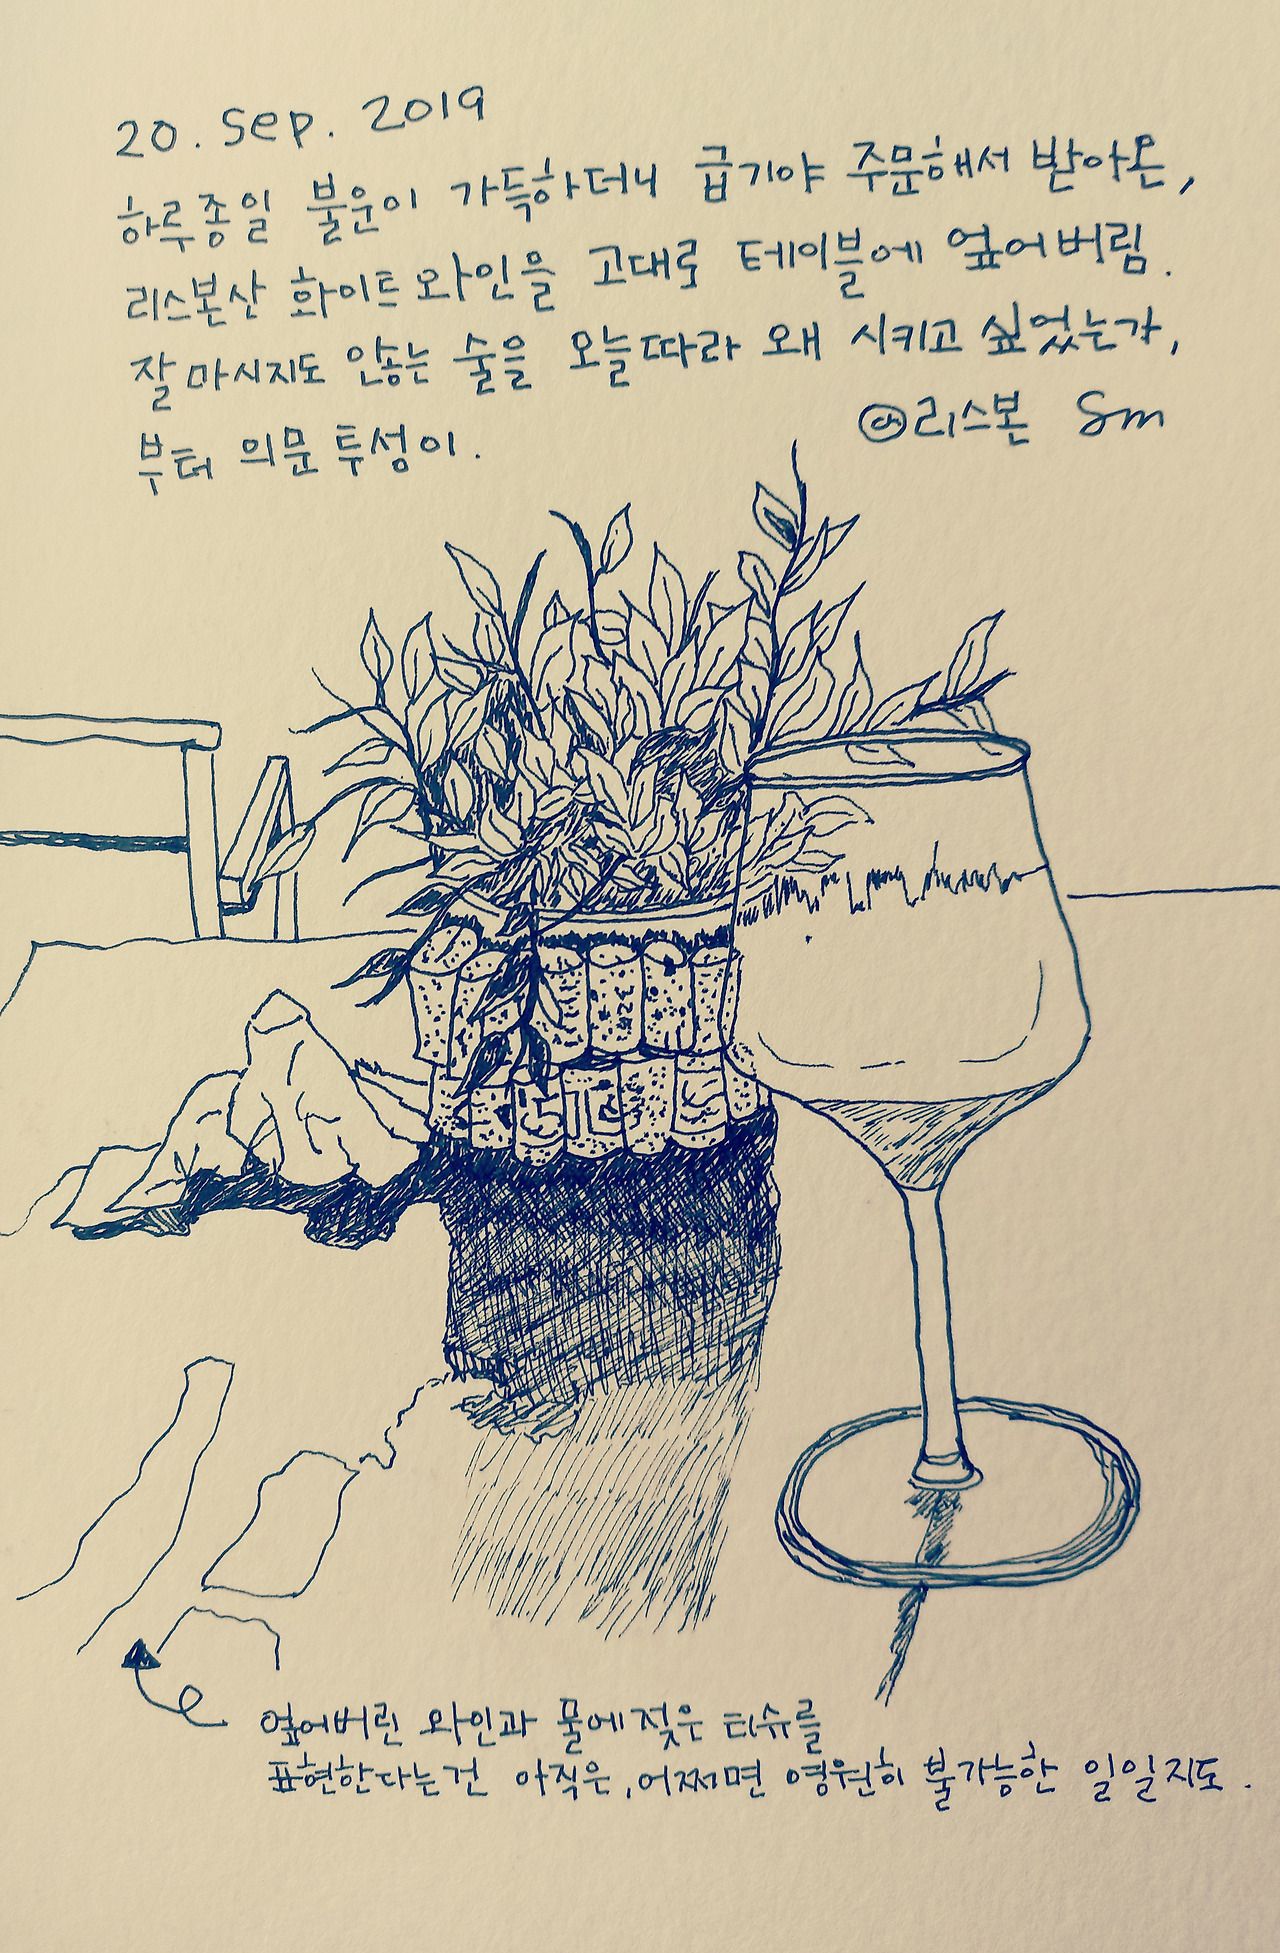 20. Sep. 2019
하루종일 불운이 가득하더니 급기야 주문해서 받아온,
리스본산 화이트와인을 고대로 테이블에 엎어버림.
잘 마시지도 않는 술을 오늘따라 왜 시키고 싶었는가,
부터 의문 투성이.
@리스본 Sm
엎어버린 와인과 물에젖은 티슈를
표현한다는건 아직은, 어쩌면 영원히 불가능한 일일지도.